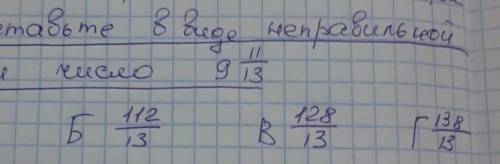 ставьте в виде неправильной
и число 9 11/13
Б 112/13 В 128/13 Г 138/13